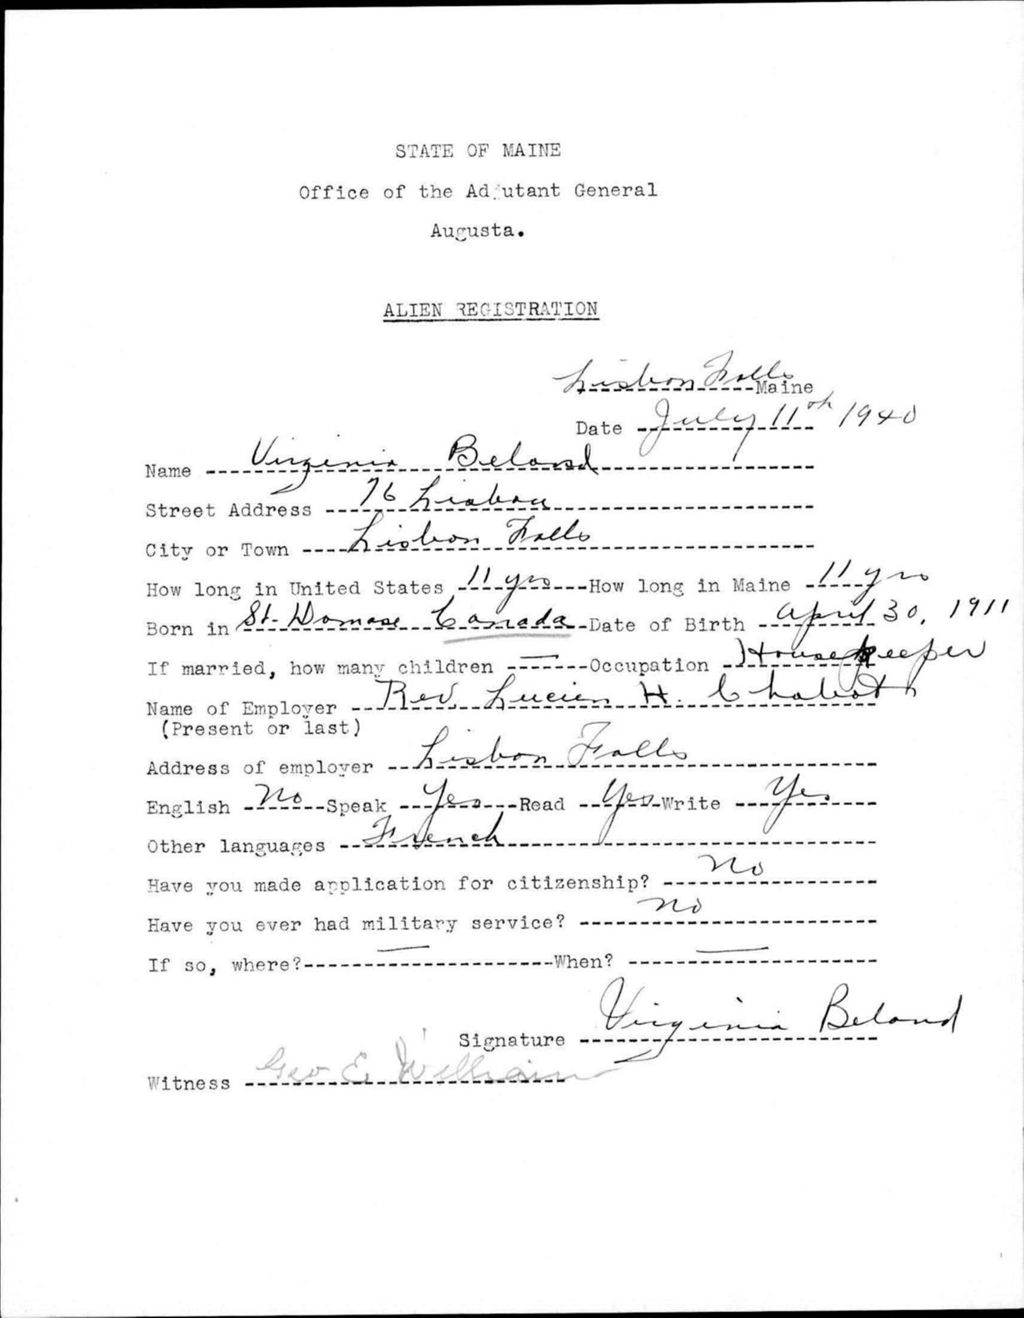 STATE OF MAINE
Office of the Adjutant General
Augusta.
ALIEN REGISTRATION
Lisbon Falls Maine
Date July 11th 1940
Name Virginia Beland
Street Address 76 Lisbon
City or Town Lisbon Falls
How long in United States 11 yrs How long in Maine 11 yrs
Born in St. Domase Canada Date of Birth April 30, 1911
If married, how many children — Occupation Housekeeper
Name of Employer Rev. Lucien H. Chabot
(Present or last)
Address of employer Lisbon Falls
English No Speak Yes Read Yes Write Yes
Other languages French
Have you made application for citizenship? No
Have you ever had military service? No
If so, where? — When? —
Signature Virginia Beland
Witness Geo E. William